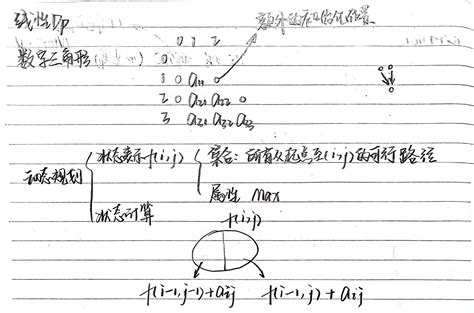 线性Dp
数字三角形
0 1 2
1 0 a11 0
2 0 a21 a22 0
3 a31 a32 a33
动态规划
状态表示 f(i,j)
集合: 所有从起点至(i,j)的可行路径
属性 Max
状态计算
f(i,j)
f(i-1,j-1)+aij f(i-1,j)+aij